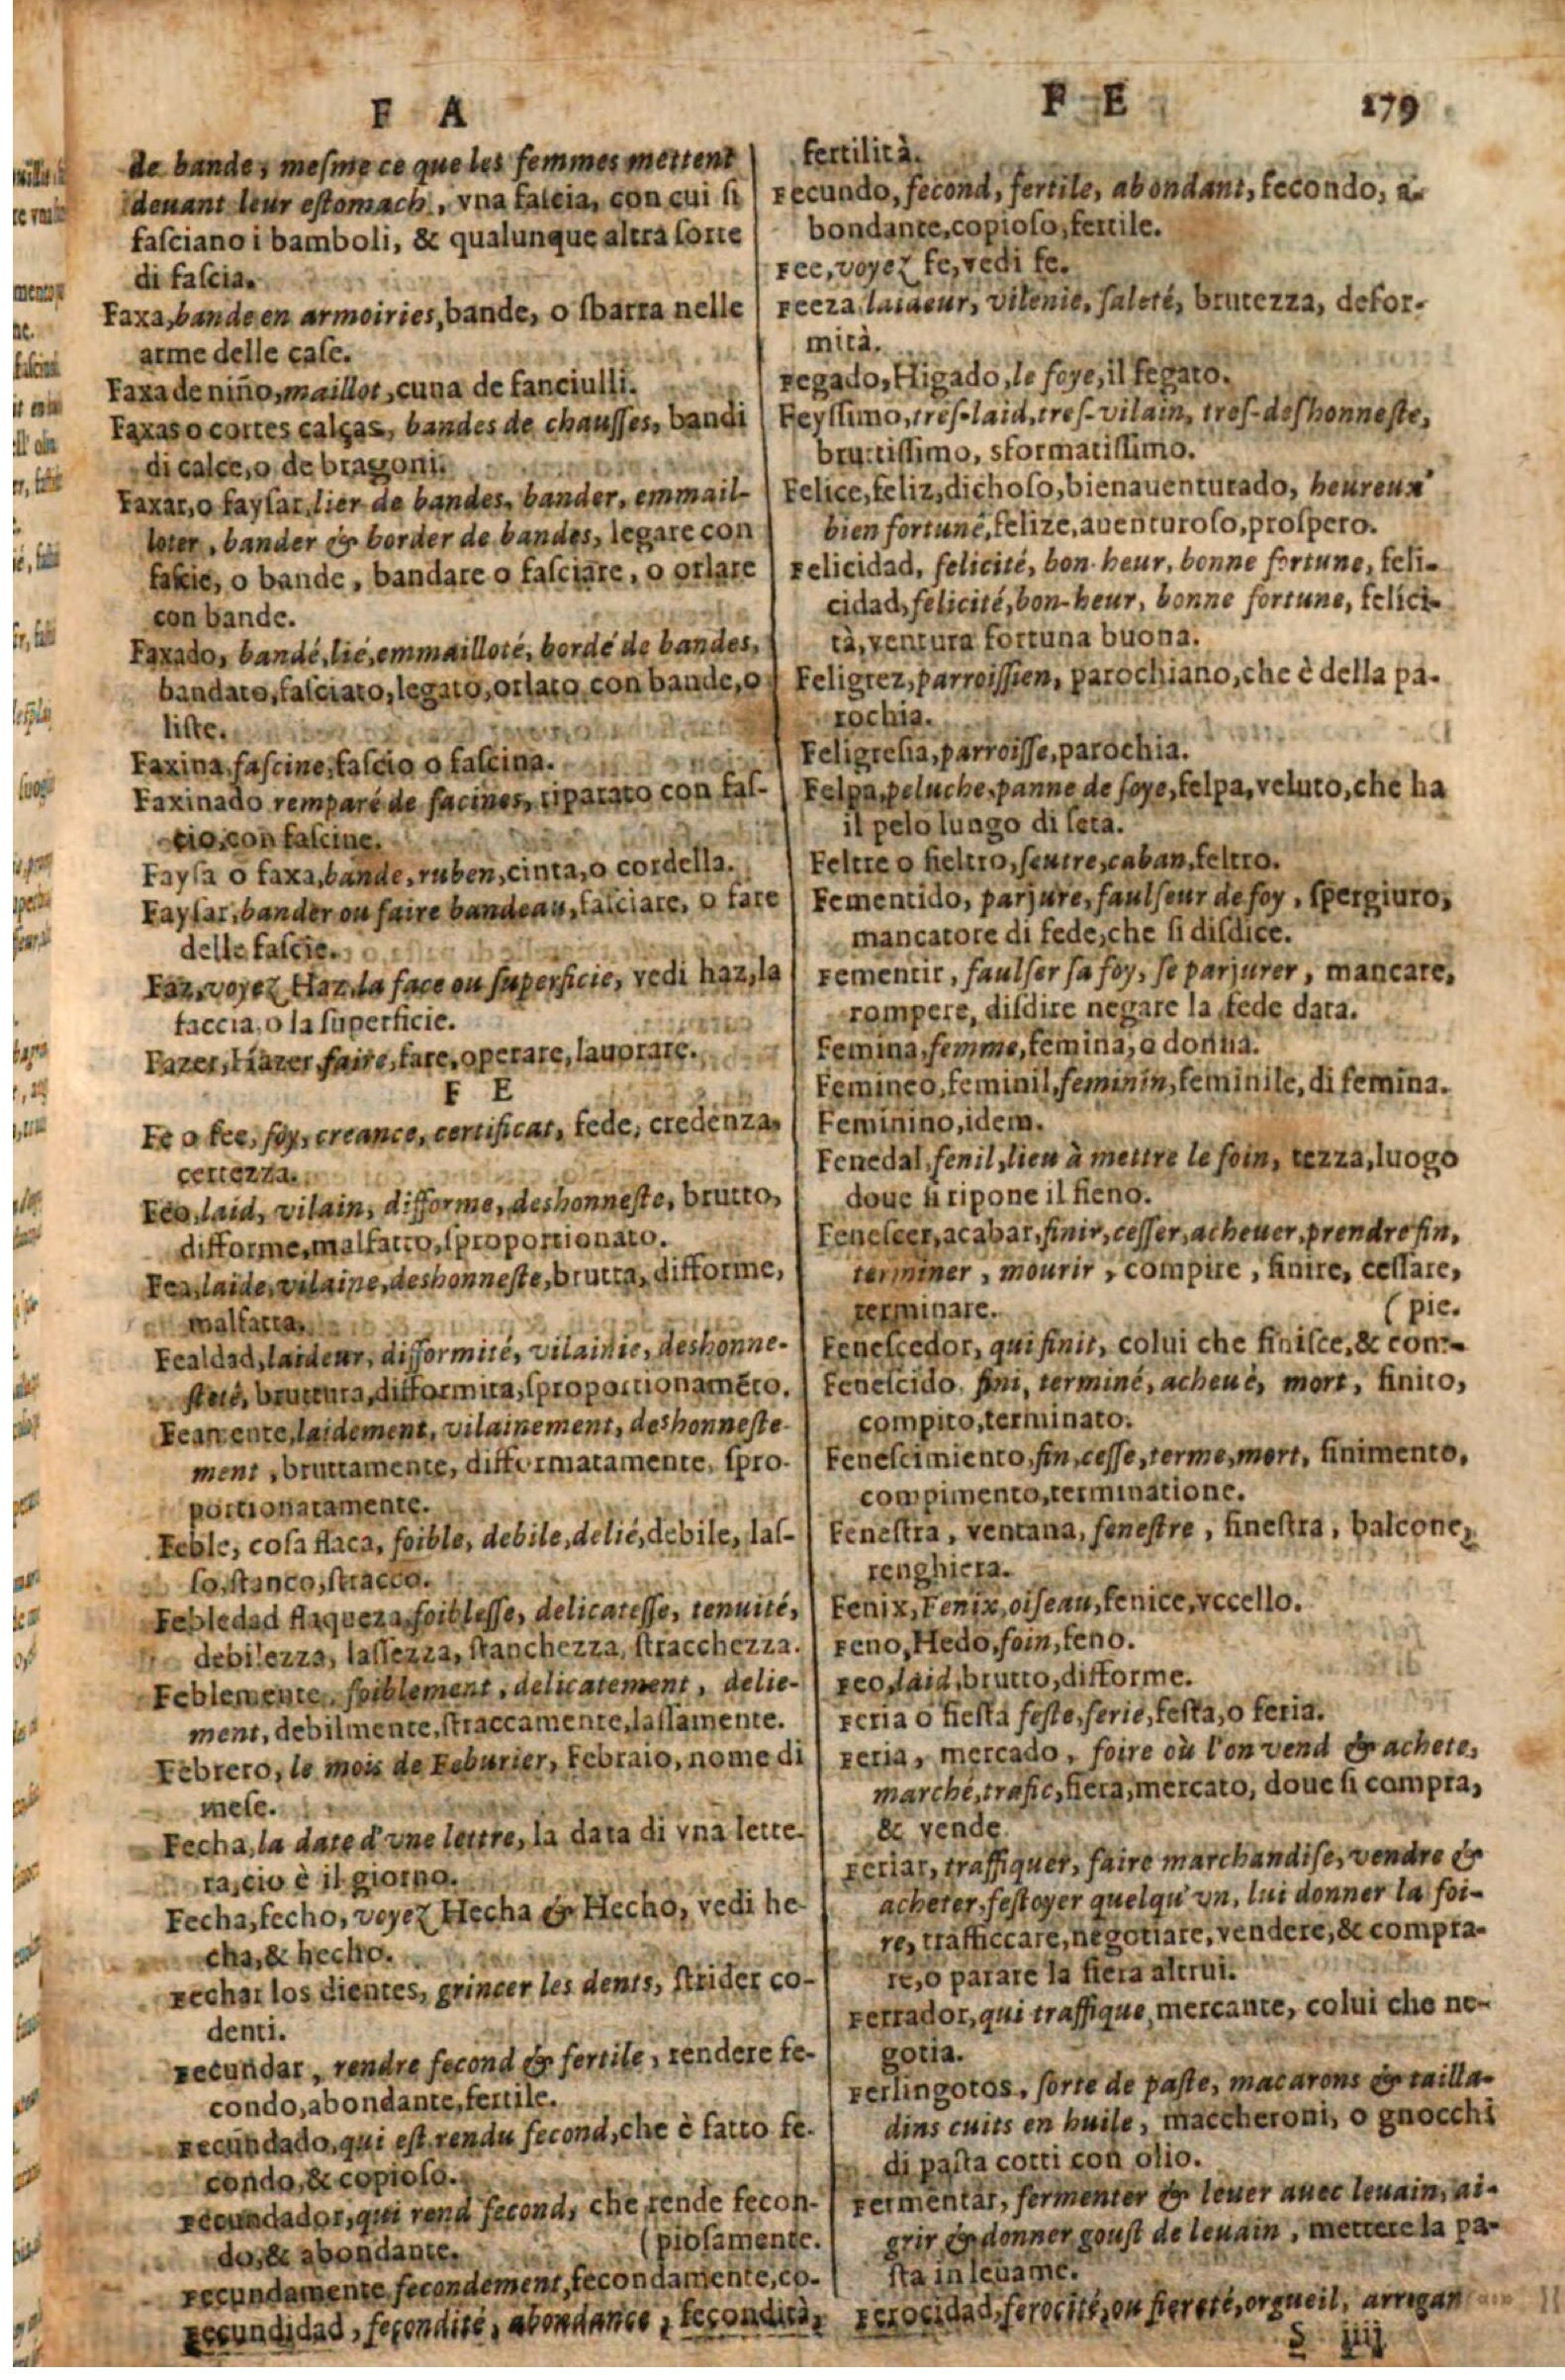 F A
de bande, meſme ce que les femmes mettent
deuant leur eſtomach, vna faſcia, con cui ſi
faſciano i bamboli, & qualunque altra ſorte
di faſcia.
Faxa, bande en armoiries, bande, o ſbarra nelle
arme delle caſe.
Faxa de niño, maillot, cuna de fanciulli.
Faxas o cortes calças, bandes de chauſſes, bandi
di calce, o de bragoni.
Faxar, o fayſar, lier de bandes, bander, emmail-
loter, bander & border de bandes, legare con
faſcie, o bande, bandare o faſciare, o orlare
con bande.
Faxado, bandé, lié, emmailloté, bordé de bandes,
bandato, faſciato, legato, orlato con bande, o
liſte.
Faxina, faſcine, faſcio o faſcina.
Faxinado remparé de facines, riparato con faſ-
cio, con faſcine.
Fayſa o faxa, bande, ruben, cinta, o cordella.
Fayſar, bander ou faire bandeau, faſciare, o fare
delle faſcie.
Faz, voyez Haz, la face ou ſuperficie, vedi haz, la
faccia, o la ſuperficie.
Fazer, Hazer, faire, fare, operare, lauorare.
F E
Fe o fee, foy, creance, certificat, fede, credenza,
certezza.
Feo, laid, vilain, difforme, deshonneſte, brutto,
difforme, malfatto, ſproportionato.
Fea, laide, vilaine, deshonneſte, brutta, difforme,
malfatta.
Fealdad, laideur, difformité, vilainie, deshonne-
ſteté, bruttura, difformita, ſproportionamēto.
Feamente, laidement, vilainement, deshonneſte
ment, bruttamente, difformatamente, ſpro-
portionatamente.
Feble, coſa flaca, foible, debile, delié, debile, laſ-
ſo, ſtanco, ſtracco.
Febledad flaqueza, foibleſſe, delicateſſe, tenuité,
debilezza, laſſezza, ſtanchezza, ſtracchezza.
Feblemente, foiblement, delicatement, delie-
ment, debilmente, ſtraccamente, laſſamente.
Febrero, le mois de Feburier, Febraio, nome di
meſe.
Fecha, la date d'vne lettre, la data di vna lette-
ra, cio è il giorno.
Fecha, fecho, voyez Hecha & Hecho, vedi he-
cha, & hecho.
Fechar los dientes, grincer les dents, ſtrider co-
denti.
Fecundar, rendre fecond & fertile, rendere fe-
condo, abondante, fertile.
Fecundado, qui eſt rendu fecond, che è fatto fe-
condo, & copioſo.
Fecundador, qui rend fecond, che rende fecon-
do, & abondante. (pioſamente.
Fecundamente fecondement, fecondamente, co-
Fecundidad, fecondité, abondance, fecondità,
F E 179
fertilità.
Fecundo, fecond, fertile, abondant, fecondo, a-
bondante, copioſo, fertile.
Fee, voyez fe, vedi fe.
Feeza, laideur, vilenie, ſaleté, brutezza, defor-
mità.
Fegado, Higado, le foye, il fegato.
Feyſſimo, treſ-laid, treſ-vilain, treſ-deſhonneſte,
bruttiſſimo, sformatiſſimo.
Felice, feliz, dichoſo, bienauenturado, heureux
bien fortuné, felize, auenturoſo, proſpero.
Felicidad, felicité, bon-heur, bonne fortune, feli-
cidad, felicité, bon-heur, bonne fortune, felici-
tà, ventura fortuna buona.
Feligrez, parroiſſien, parochiano, che è della pa-
rochia.
Feligreſia, parroiſſe, parochia.
Felpa, peluche, panne de ſoye, felpa, veluto, che ha
il pelo lungo di ſeta.
Feltre o fieltro, feutre, caban, feltro.
Fementido, parjure, faulſeur de foy, ſpergiuro,
mancatore di fede, che ſi diſdice.
Fementir, faulſer ſa foy, ſe parjurer, mancare,
rompere, diſdire negare la fede data.
Femina, femme, femina, o donna.
Femineo, feminil, feminin, feminile, di femina.
Feminino, idem.
Fenedal, fenil, lieu à mettre le foin, tezza, luogo
doue ſi ripone il fieno.
Feneſcer, acabar, finir, ceſſer, acheuer, prendre fin,
terminer, mourir, compire, finire, ceſſare,
terminare. (pie.
Feneſcedor, qui finit, colui che finiſce, & com-
Feneſcido, fini, terminé, acheué, mort, finito,
compito, terminato.
Feneſcimiento, fin, ceſſe, terme, mort, finimento,
compimento, terminatione.
Feneſtra, ventana, feneſtre, fineſtra, balcone,
renghiera.
Fenix, Fenix, oiſeau, fenice, vccello.
Feno, Hedo, foin, feno.
Feo, laid, brutto, difforme.
Feria o fieſta feſte, ferie, feſta, o feria.
Feria, mercado, foire où l'on vend & achete,
marché, trafic, fiera, mercato, doue ſi compra,
& vende
Feriar, traffiquer, faire marchandiſe, vendre &
acheter, feſtoyer quelqu'vn, lui donner la foi-
re, trafficcare, negotiare, vendere, & compra-
re, o parare la fiera altrui.
Ferrador, qui traffique, mercante, colui che ne-
gotia.
Ferlingotos, ſorte de paſte, macarons & tailla-
dins cuits en huile, maccheroni, o gnocchi
di paſta cotti con olio.
Fermentar, fermenter & leuer auec leuain, ai-
grir & donner gouſt de leuain, mettere la pa-
ſta in leuame.
Ferocidad, ferocité, ou fiereté, orgueil, arrogan
S iiij